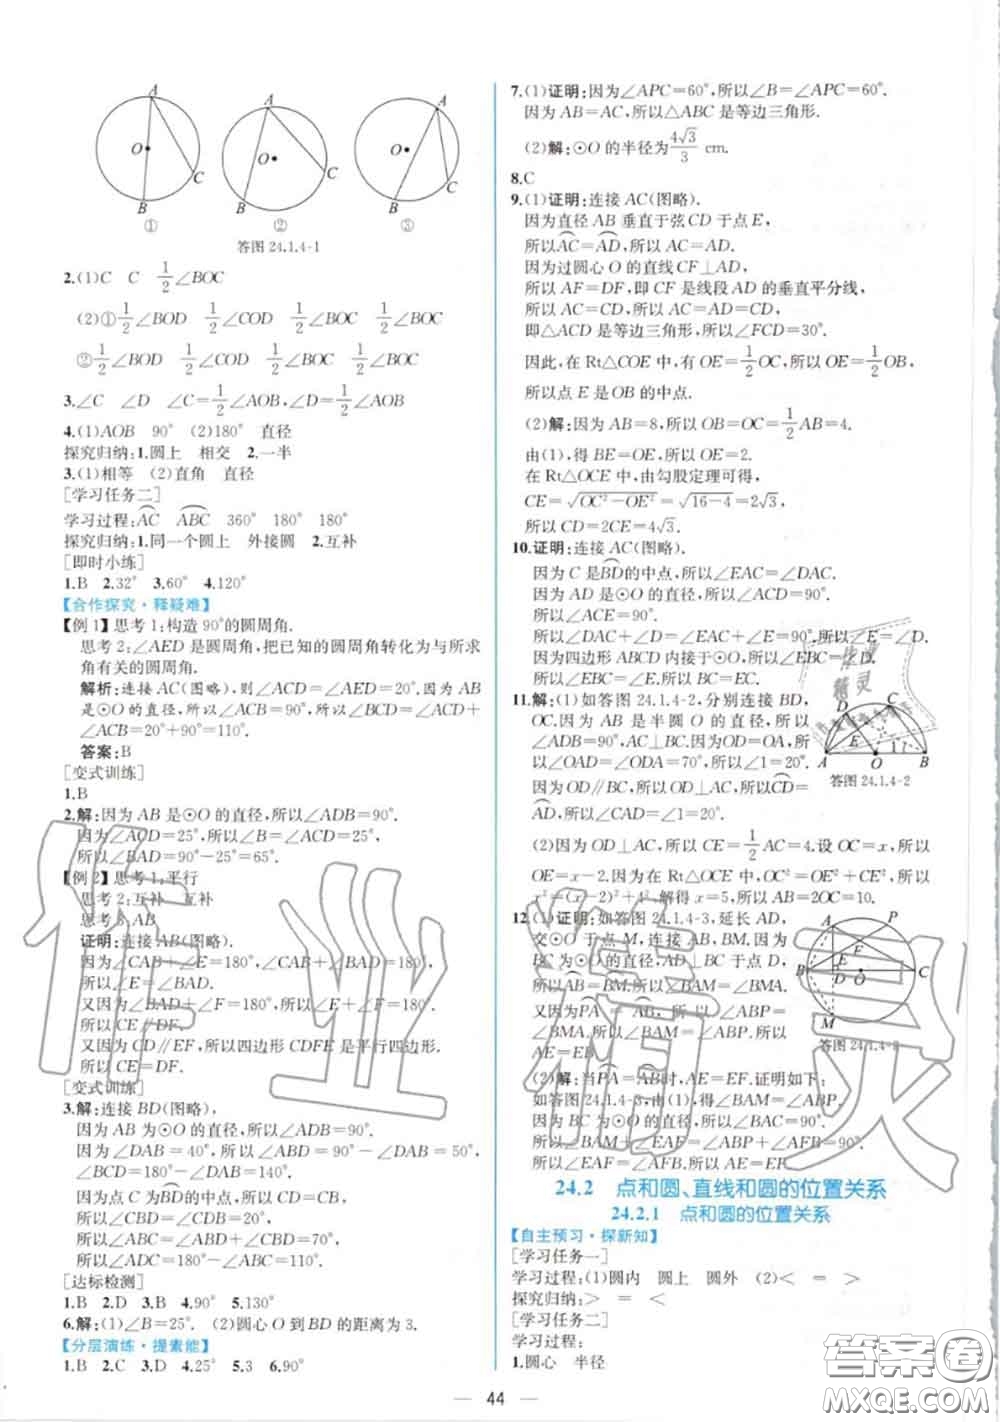 A
O
B
C
①
A
O
B
C
②
A
O
B
C
③
答图 24.1.4-1
2.(1)C C 1/2∠BOC
(2)①1/2∠BOD 1/2∠COD 1/2∠BOC 1/2∠BOC
②1/2∠BOD 1/2∠COD 1/2∠BOC 1/2∠BOC
3.∠C ∠D ∠C=1/2∠AOB,∠D=1/2∠AOB
4.(1)AOB 90° (2)180° 直径
探究归纳:1.圆上 相交 2.一半
3.(1)相等 (2)直角 直径
[学习任务二]
学习过程:AC ABC 360° 180° 180°
探究归纳:1.同一个圆上 外接圆 2.互补
[即时小练]
1.B 2.32° 3.60° 4.120°
【合作探究·释疑难】
【例1】思考1:构造90°的圆周角.
思考2:∠AED是圆周角,把已知的圆周角转化为与所求
角有关的圆周角.
解析:连接AC(图略),则∠ACD=∠AED=20°.因为AB
是⊙O的直径,所以∠ACB=90°,所以∠BCD=∠ACD+
∠ACB=20°+90°=110°.
答案:B
[变式训练]
1.B
2.解:因为AB是⊙O的直径,所以∠ADB=90°.
因为∠ACD=25°,所以∠B=∠ACD=25°.
所以∠BAD=90°-25°=65°.
【例2】思考1:平行
思考2:互补 互补
思考3:AB
证明:连接AB(图略).
因为∠CAB+∠E=180°,∠CAB+∠BAD=180°,
所以∠E=∠BAD.
又因为∠BAD+∠F=180°,所以∠E+∠F=180°.
所以CE∥DF.
又因为CD∥EF,所以四边形CDFE是平行四边形.
所以CE=DF.
[变式训练]
3.解:连接BD(图略),
因为AB为⊙O的直径,所以∠ADB=90°.
因为∠DAB=40°,所以∠ABD=90°-∠DAB=50°.
∠BCD=180°-∠DAB=140°.
因为点C为BD的中点,所以CD=CB.
所以∠CBD=∠CDB=20°.
所以∠ABC=∠ABD+∠CBD=70°.
所以∠ADC=180°-∠ABC=110°.
[达标检测]
1.B 2.D 3.B 4.90° 5.130°
6.解:(1)∠B=25°. (2)圆心O到BD的距离为3.
【分层演练·提素能】
1.B 2.C 3.D 4.25° 5.3 6.90°
7.(1)证明:因为∠APC=60°,所以∠B=∠APC=60°.
因为AB=AC,所以△ABC是等边三角形.
(2)解:⊙O的半径为4√3/3 cm.
8.C
9.(1)证明:连接AC(图略).
因为直径AB垂直于弦CD于点E,
所以AC=AD,所以AC=AD.
因为过圆心O的直线CF⊥AD,
所以AF=DF,即CF是线段AD的垂直平分线,
所以AC=CD,所以AC=AD=CD.
即△ACD是等边三角形,所以∠FCD=30°.
因此,在Rt△COE中,有OE=1/2OC,所以OE=1/2OB,
所以点E是OB的中点.
(2)解:因为AB=8,所以OB=OC=1/2AB=4.
由(1),得BE=OE,所以OE=2.
在Rt△OCE中,由勾股定理可得,
CE=√OC²-OE²=√16-4=2√3,
所以CD=2CE=4√3.
10.证明:连接AC(图略).
因为C是BD的中点,所以∠EAC=∠DAC.
因为AD是⊙O的直径,
所以∠ACE=90°.
所以∠DAC+∠D=∠EAC+∠E=90°,所以∠E=∠D.
因为四边形ABCD内接于⊙O,所以∠EBC=∠D.
所以∠EBC=∠E.所以BC=EC.
11.解:(1)如答图24.1.4-2,分别连接BD,
OC.因为AB是半圆O的直径,所以
∠ADB=90°,AC⊥BC.因为OD=OA,所以
∠OAD=∠ODA=70°,所以∠1=20°.
因为OD∥BC,所以OD⊥AC,所以CD=
AD,所以∠2=∠1=20°.
(2)因为OD⊥AC,所以CE=1/2AC=4.设OC=x,所以
OE=x-2.因为在Rt△OCE中,OC²=OE²+CE²,所以
x²=(x-2)²+4².解得x=5,所以AB=2OC=10.
D
C
A
O
B
答图 24.1.4-2
12.(1)证明:如答图24.1.4-3,延长AD,
交⊙O于点M,连接AB,BM.因为
BC为⊙O的直径,AD⊥BC于点D,
所以AB=BM.所以∠BAM=∠BMA.
又因为PA=AB,所以∠ABP=
∠BMA.所以∠BAM=∠ABP.所以
AE=EB.
A
P
F
E
B
D
O
C
M
答图 24.1.4-3
(2)解:当PA=AB时,AE=EF.证明如下:
如答图24.1.4-3,由(1),得∠BAM=∠ABP.
因为BC为⊙O的直径,所以∠BAC=90°.
所以∠BAM+∠EAF=∠ABP+∠AFB=90°.
所以∠EAF=∠AFB.所以AE=EF.
24.2 点和圆、直线和圆的位置关系
24.2.1 点和圆的位置关系
【自主预习·探新知】
[学习任务一]
学习过程:(1)圆内 圆上 圆外 (2)< = >
探究归纳:> = <
[学习任务二]
学习过程:
1.圆心 半径
44
作业精灵
答案圈
MXQE.COM